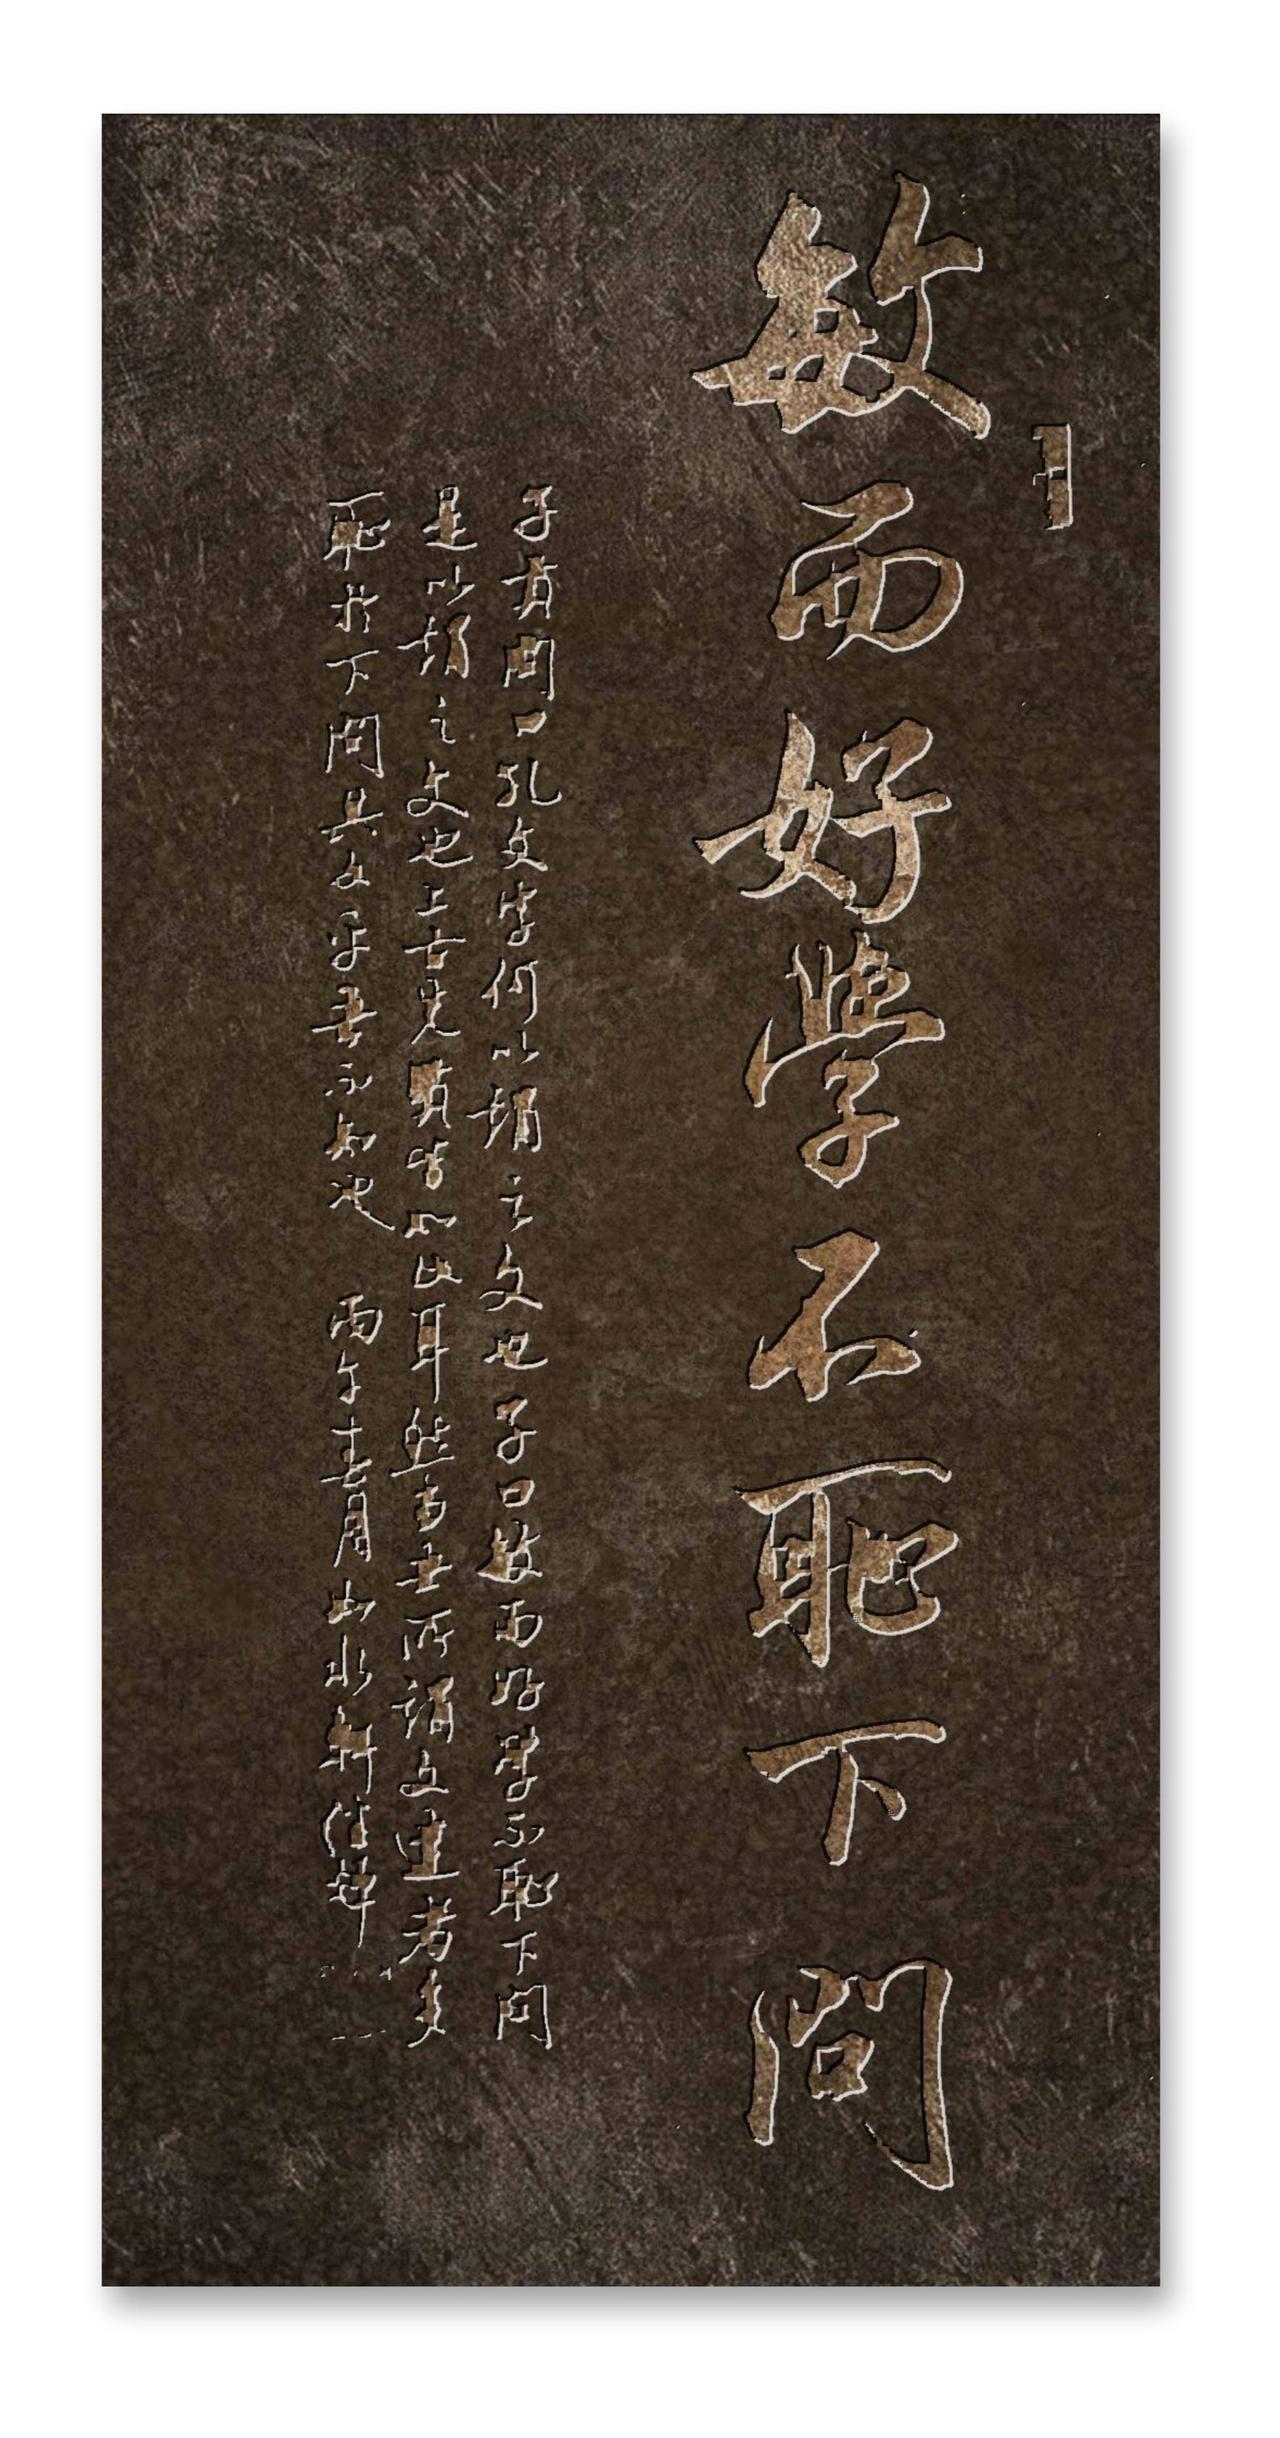 敏而好學不恥下問
子貢問曰孔文子何以謂之文也子曰敏而好學不恥下問
是以謂之文也上古先賢皆如此耳然方士所謂文達者多
恥於下問其文乎吾不知也 丙午十二月 山水軒